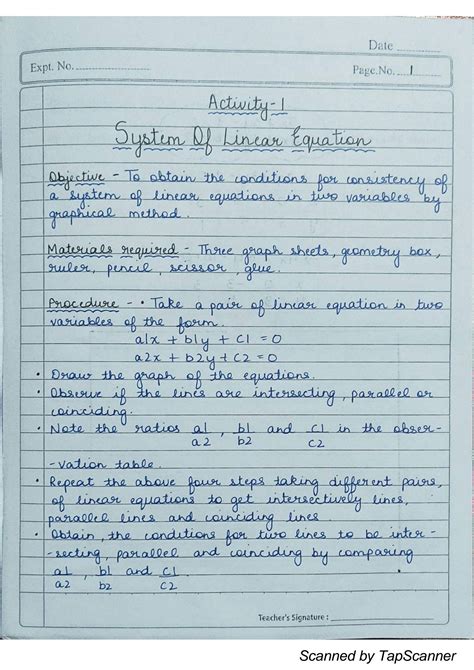 Date
Expt. No.
Page.No. 1
Activity-1
System Of Linear Equation
Objective - To obtain the conditions for consistency of
a system of linear equations in two variables by
graphical method.
Materials required - Three graph sheets, geometry box,
ruler, pencil, scissor, glue.
Procedure - • Take a pair of linear equation in two
variables of the form.
a1x + b1y + C1 = 0
a2x + b2y + C2 = 0
• Draw the graph of the equations.
• Observe if the lines are intersecting, parallel or
coinciding.
• Note the ratios a1/a2, b1/b2 and C1/C2 in the obser-
-vation table.
• Repeat the above four steps taking different pairs,
of linear equations to get intersectively lines,
parallel lines and coinciding lines.
• Obtain, the conditions for two lines to be inter-
-secting, parallel and coinciding by comparing
a1/a2, b1/b2 and C1/C2
Teacher's Signature :
Scanned by TapScanner